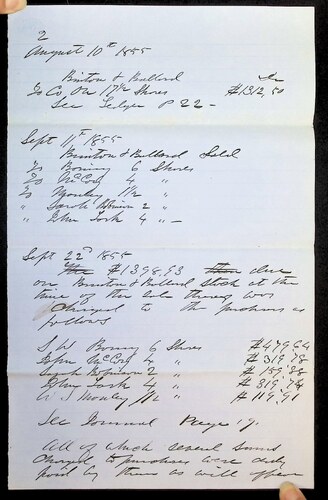 2
August 10th 1855
Brinton & Bullard Dr
To Co. On 17½ Shares $1312,50
See Ledger P 22 —
Sept 11th 1855
Brinton & Bullard Sold
To Boring 6 Shares
To McCoy 4 "
To Mowley 1½ "
" Sarah Robinson 2 "
" John Tork 4 " —
Sept 22d 1855
$1398,93 due
on Brinton & Bullard Stock at the
time of the sale thereof was
Charged to the purchasers as
follows
S. W. Boring 6 Shares $479,64
John McCoy 4 " $319,78
Sarah Robinson 2 " $159,88
John Tork 4 " $319,78
W. S. Mowley 1½ " $119,91
See Journal Page
All of which several sums
Charged to purchasers were duly
paid by them as will appear